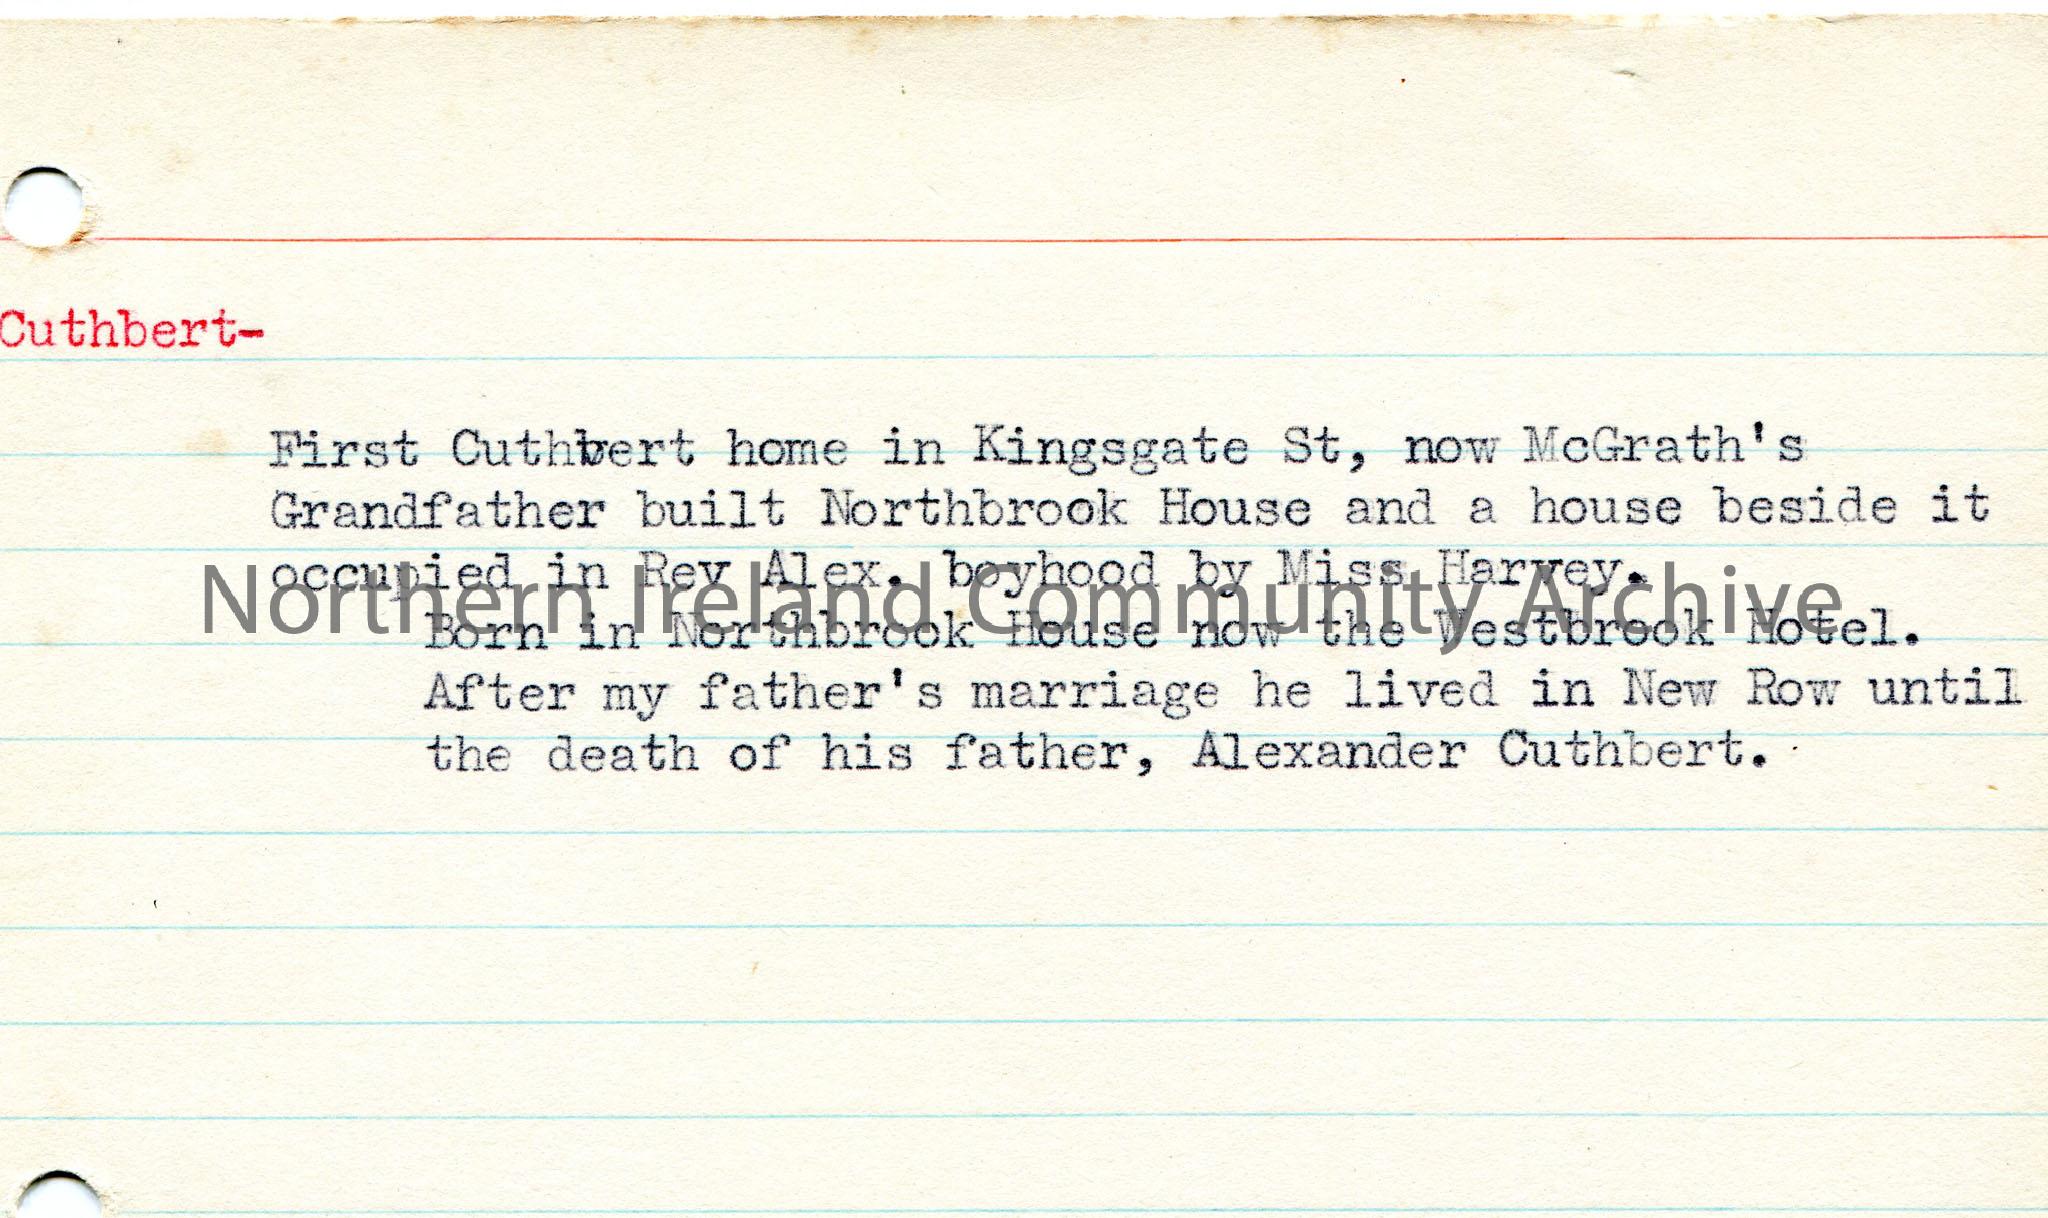 Cuthbert-
First Cuthbert home in Kingsgate St, now McGrath's
Grandfather built Northbrook House and a house beside it
occupied in Rev Alex. boyhood by Miss Harvey.
Northern Ireland Community Archive
Born in Northbrook House now the Westbrook Hotel.
After my father's marriage he lived in New Row until
the death of his father, Alexander Cuthbert.